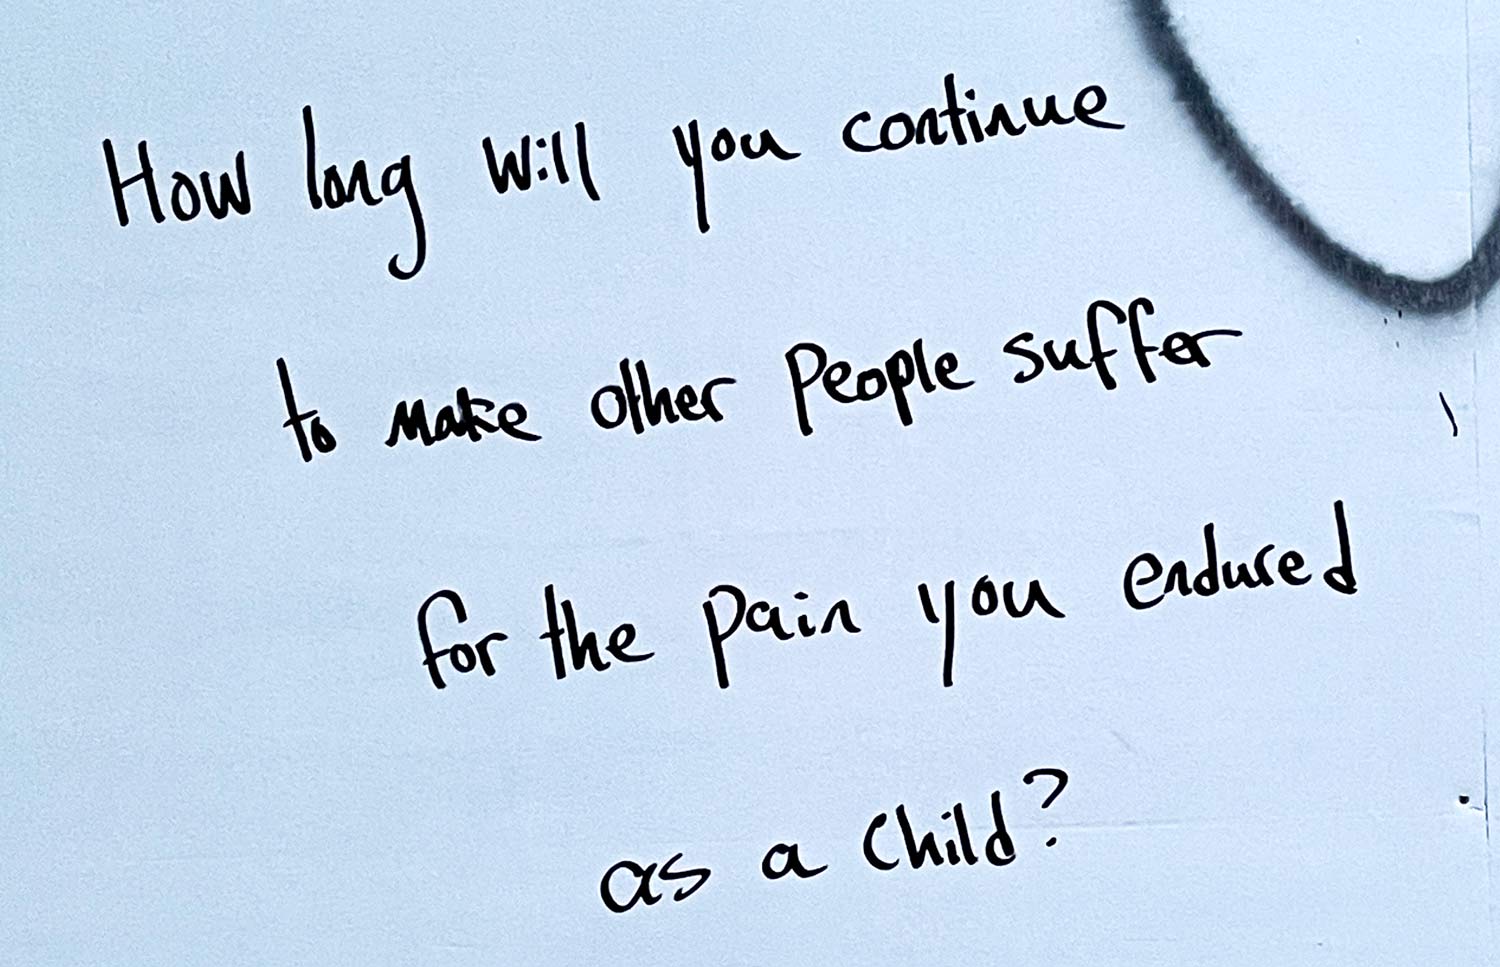 How long will you continue
to make other People suffer
for the pain you endured
as a child?